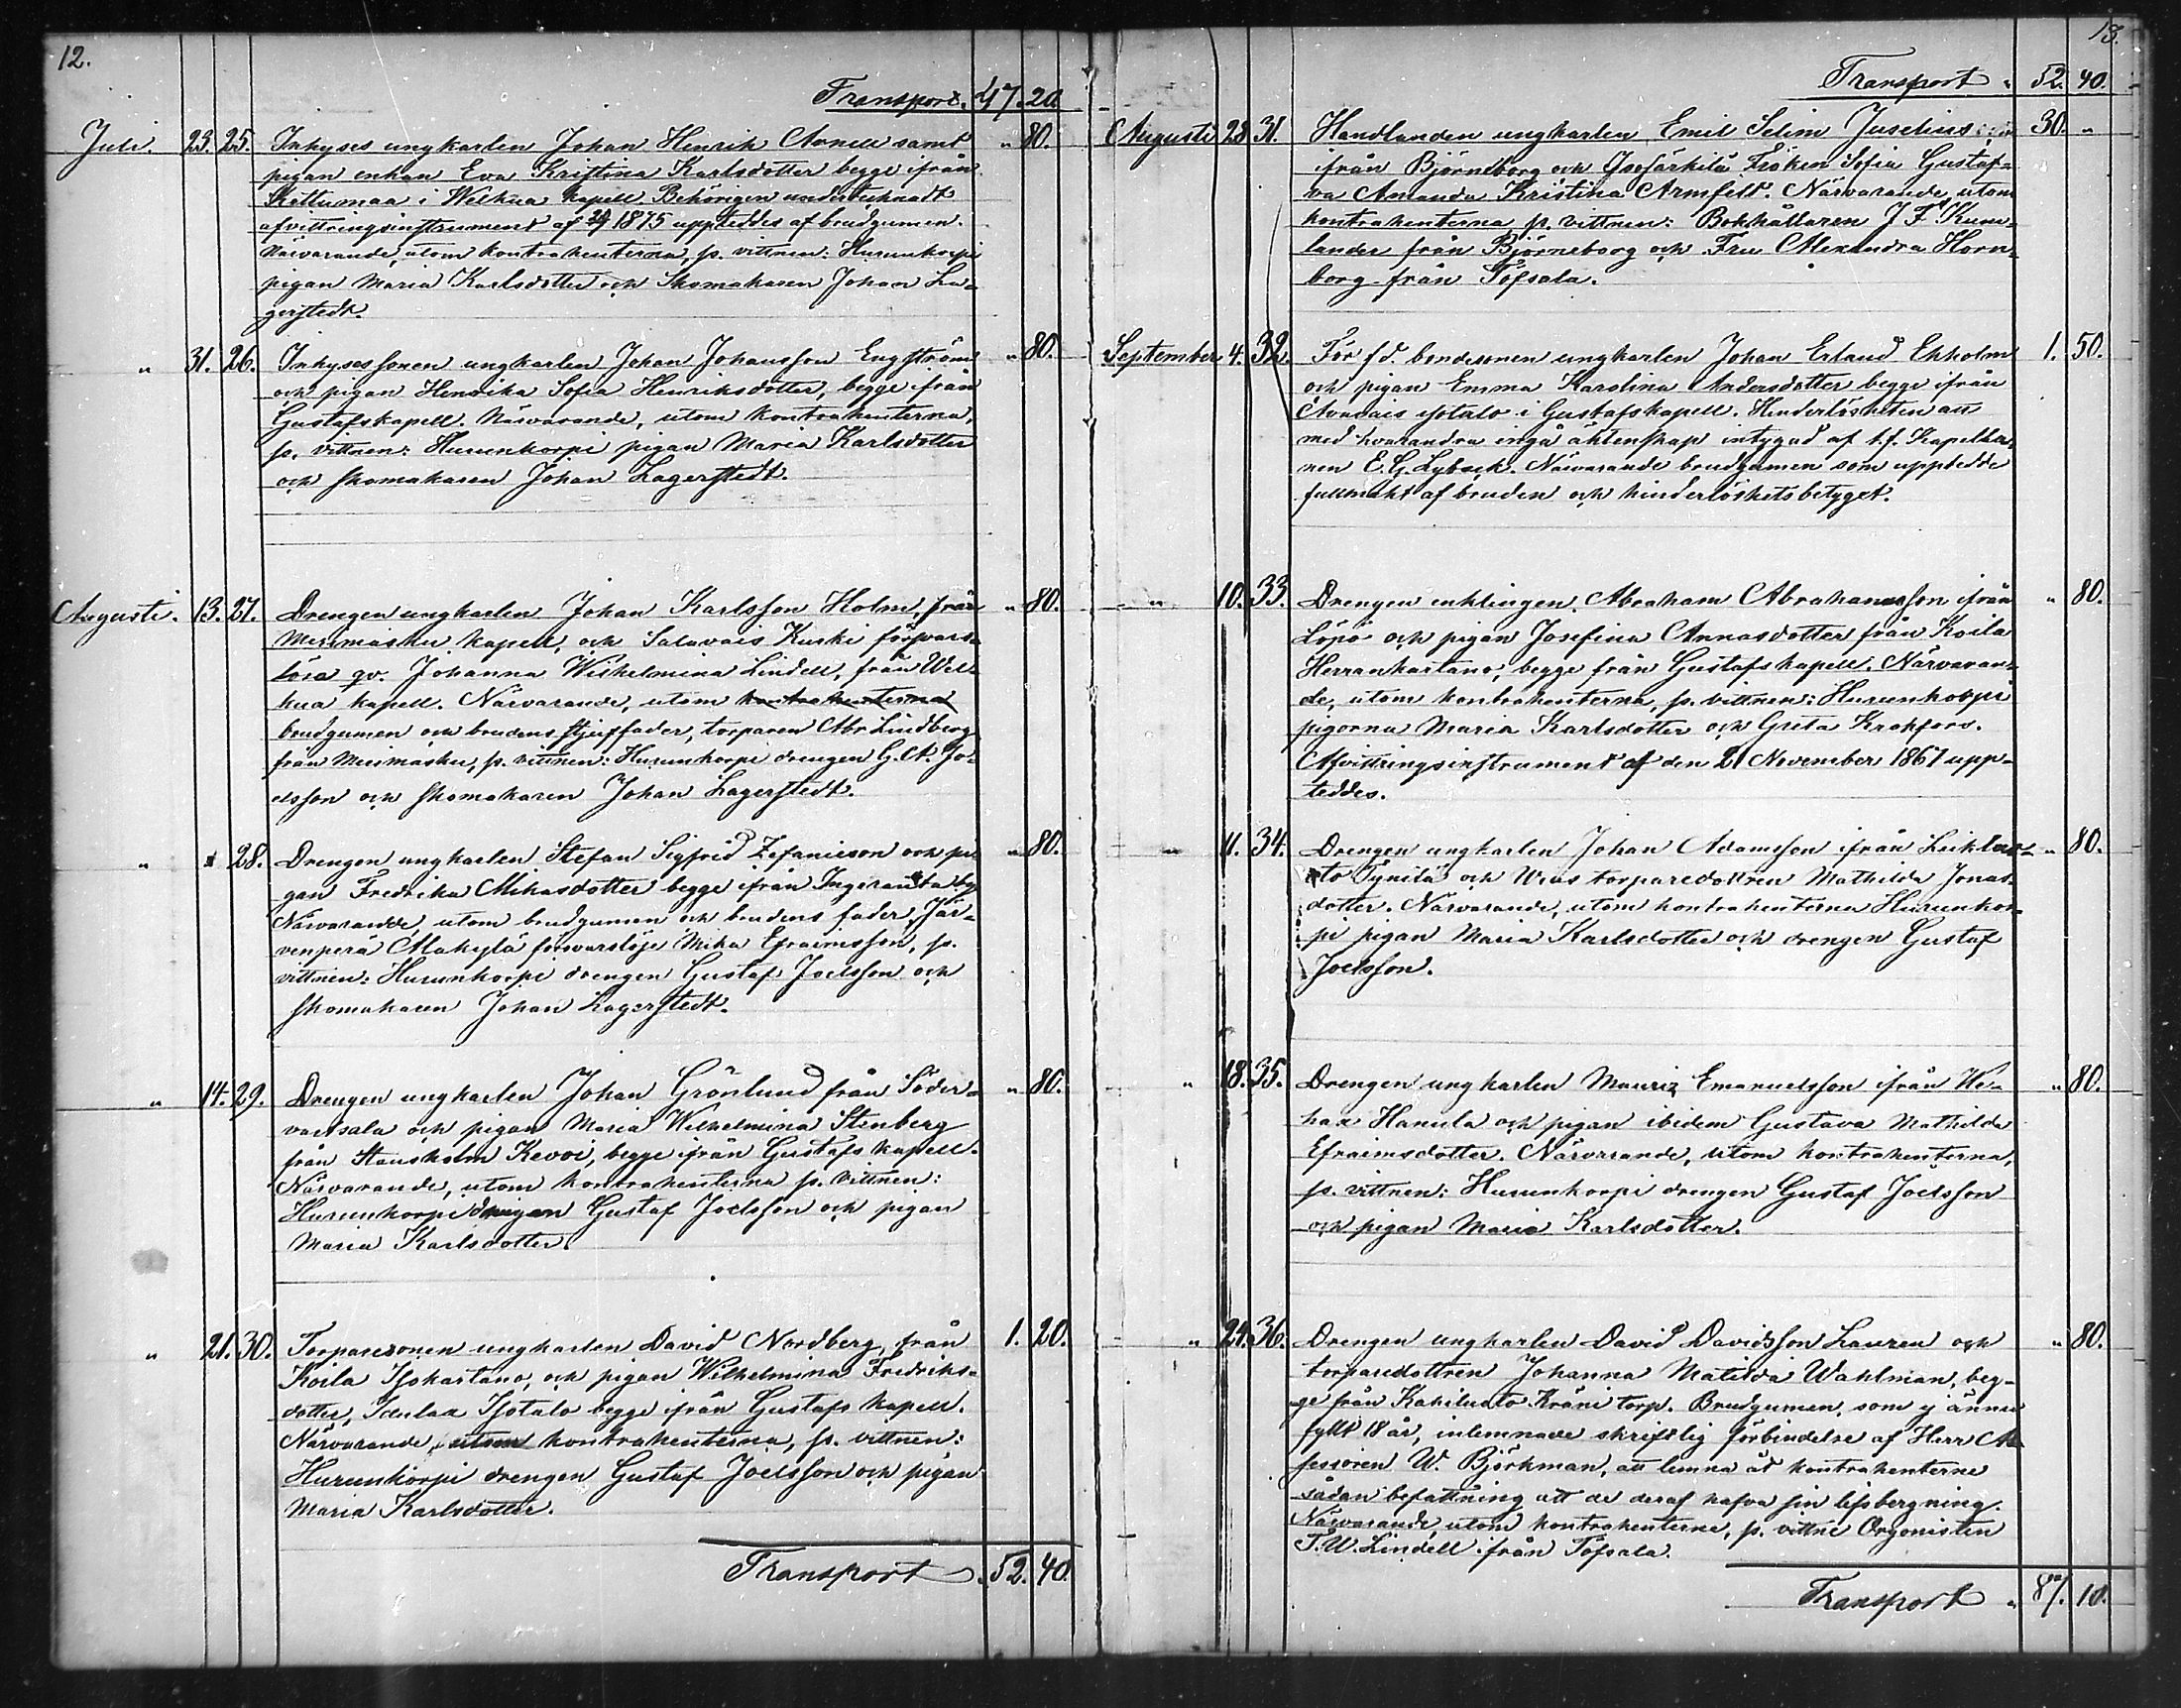 12.
Transport. 47. 20
Juli. 23. 25. Inhyses ungkarlen Johan Henrik Anell samt „ 80.
pigan enkan Eva Kristina Karlsdotter begge ifrån
Kettumaa i Welkua kapell. Behörigen undertecknadt
afvittringsinstrument af 1875 uppteddes af brudgumen.
Närvarande, utom kontrahenterna, ss. vittnen: Hurunkorpi
pigan Maria Karlsdotter och Skomakaren Johan La-
gerstedt.
„ 31. 26. Inhysessonen ungkarlen Johan Johansson Engström „ 80.
och pigan Henrika Sofia Henriksdotter, begge ifrån
Gustafs kapell. Närvarande, utom kontrahenterna,
ss. vittnen: Hurunkorpi pigan Maria Karlsdotter
och skomakaren Johan Lagerstedt.
Augusti. 13. 27. Drengen ungkarlen Johan Karlsson Holm, från „ 80.
Merimasku kapell, och Salavais Kurki försvars-
lösa qv. Johanna Wilhelmina Lindell, från Wel-
kua kapell. Närvarande, utom kontrahenterna
brudgumen och brudens stjuffader, torparen Abr Lindberg
från Merimasku, ss. vittnen: Hurunkorpi drengen G. A. Jo-
elsson och skomakaren Johan Lagerstedt.
„ „ 28. Drengen ungkarlen Stefan Sigfrid Zefaniason och pi- „ 80.
gan Fredrika Mikasdotter begge ifrån Ingeranta by
Närvarande, utom brudgumen och brudens fader, Jär-
venperä Alakylä försvarslöse Mika Efraimsson, ss.
vittnen: Hurunkorpi drengen Gustaf Joelsson och
skomakaren Johan Lagerstedt.
„ 14. 29. Drengen ungkarlen Johan Grönlund från Söder- „ 80.
vartsala och pigan Maria Wilhelmina Stenberg
från Stensholm Kevoi, begge ifrån Gustafs kapell.
Närvarande, utom kontrahenterna ss. vittnen:
Hurunkorpi drengen Gustaf Joelsson och pigan
Maria Karlsdotter.
„ 21. 30. Torparesonen ungkarlen David Nordberg, från 1. 20.
Koila Isokartano, och pigan Wilhelmina Fredriks-
dotter, Isotalo begge ifrån Gustafs kapell.
Närvarande, utom kontrahenterna, ss. vittnen:
Hurunkorpi drengen Gustaf Joelsson och pigan
Maria Karlsdotter.
Transport 52. 40.
13.
Transport „ 52. 40.
Augusti 28 31. Handlanden ungkarlen Emil Selim Juselius 30. „
ifrån Björneborg och Isosärkilä Fröken Sofia Gustaf-
va Amanda Kristina Armfelt. Närvarande, utom
kontrahenterna ss. vittnen: Bokhållaren J F Kum-
lander från Björneborg och Fru Alexandra Horn-
borg från Töfsala.
September 4. 32. För f d. bondesonen ungkarlen Johan Erland Ekholm 1. 50.
och pigan Emma Karolina Andersdotter begge ifrån
Anavais Isotalo i Gustafs kapell. Hinderlösheten att
med hvarandra ingå äktenskap intygad af t. f. Kapella-
nen E. G. Lyback. Närvarande brudgumen som upptedde
fullmakt af bruden och hinderlöshetsbetyget.
„ 10. 33. Drengen enklingen Abraham Abrahamsson ifrån „ 80.
Löpö och pigan Josefina Annasdotter från Koila
Herrankartano, begge från Gustafs kapell. Närvaran-
de, utom kontrahenterna, ss. vittnen: Hurunkorpi
pigorna Maria Karlsdotter och Greta Krakfors.
Afvittringsinstrument af den 21 November 1867 upp-
teddes.
„ 11. 34. Drengen ungkarlen Johan Adamsson ifrån Leiklus- „ 80.
to Tynilä och torparedottren Mathilda Jonas-
dotter. Närvarande, utom kontrahenterna Hurunkor-
pi pigan Maria Karlsdotter och drengen Gustaf
Joelsson.
„ 18. 35. Drengen ungkarlen Mauriz Emanuelsson ifrån We- „ 80.
hax Hanula och pigan ibidem Gustava Mathilda
Efraimsdotter. Närvarande, utom kontrahenterna,
ss. vittnen: Hurunkorpi drengen Gustaf Joelsson
och pigan Maria Karlsdotter.
„ 24. 36. Drengen ungkarlen David Davidsson Lauren och „ 80.
torparedottren Johanna Matilda Wahlman, beg-
ge från Kahiluoto Kräni torp. Brudgumen, som ej ännu
fyllt 18 år, inlemnade skriftlig förbindelse af Herr As-
sessoren W. Björkman, att lemna åt kontrahenterne
sådan befattning att de deraf hafva sin lifsbergning.
Närvarande, utom kontrahenterne, ss. vittne Orgonisten
T. W. Lindell från Töfsala.
Transport „ 87. 10.